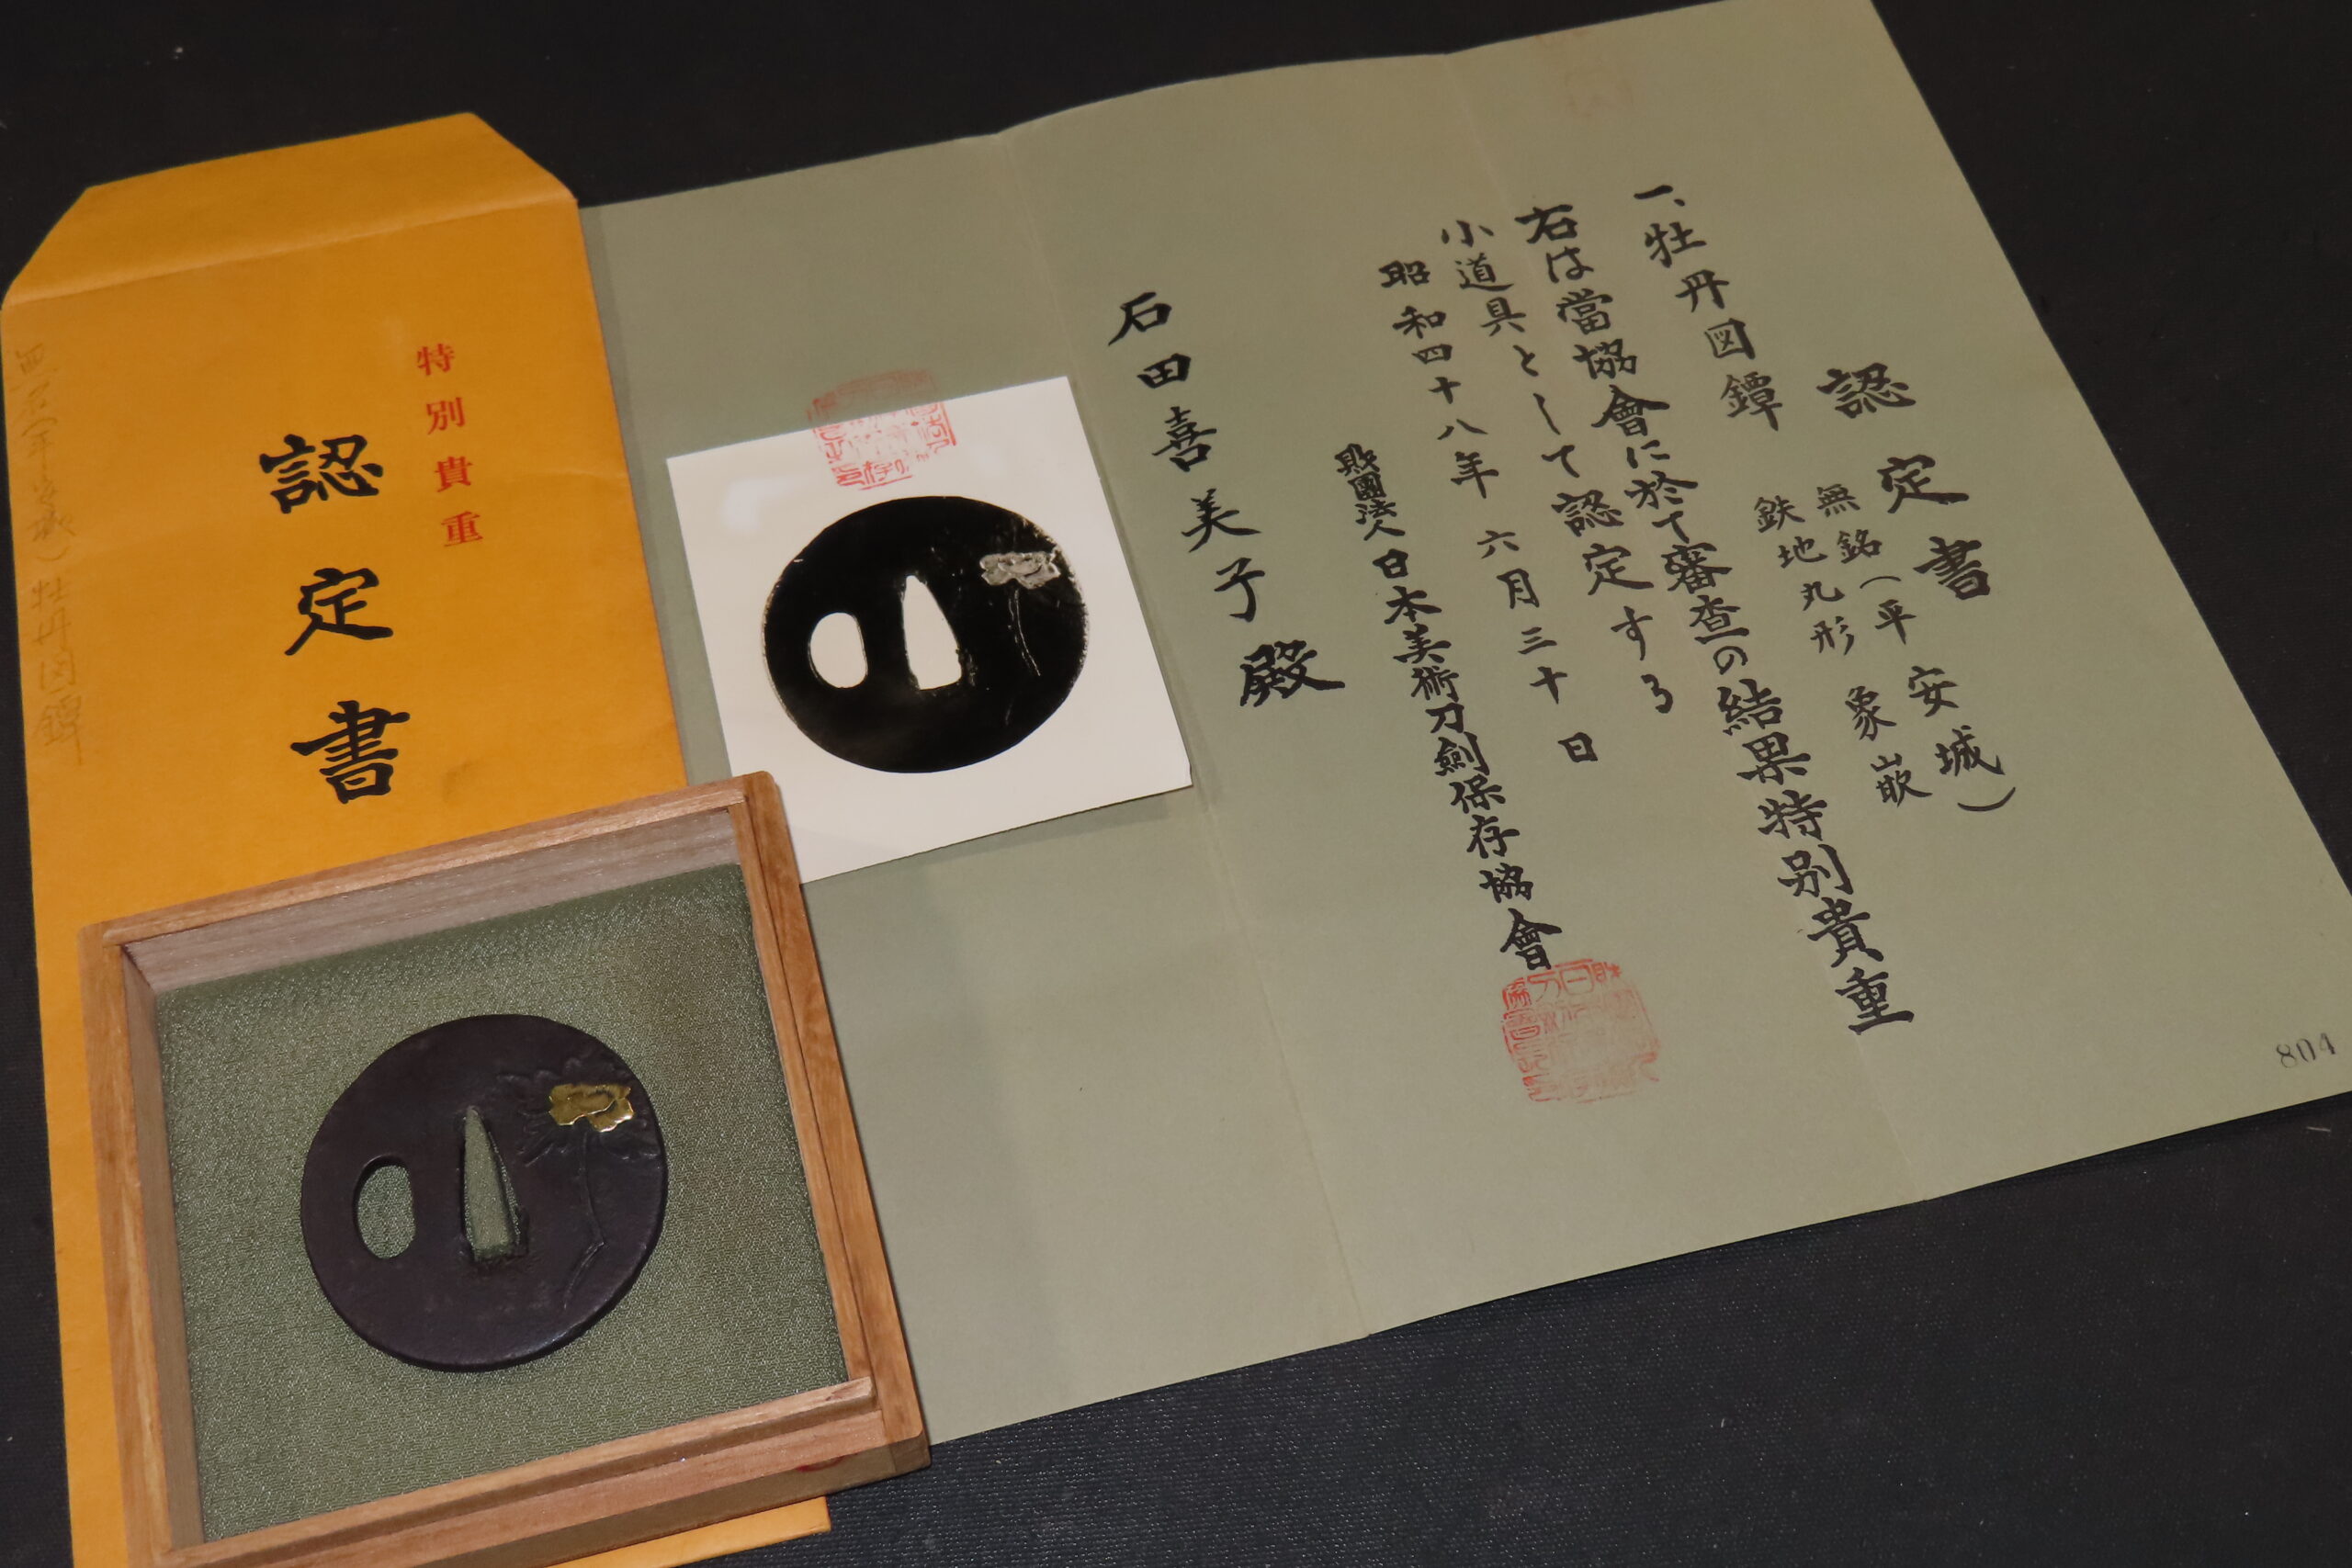 認定書
一、牡丹図鐔
無銘(平安城)
鉄地丸形 象嵌
右は當協會に於て審査の結果特別貴重
小道具として認定する
昭和四十八年 六月三十日
財團法人日本美術刀劍保存協會
石田喜美子殿
804
特別貴重
認定書
無名(平安城)牡丹図鐔